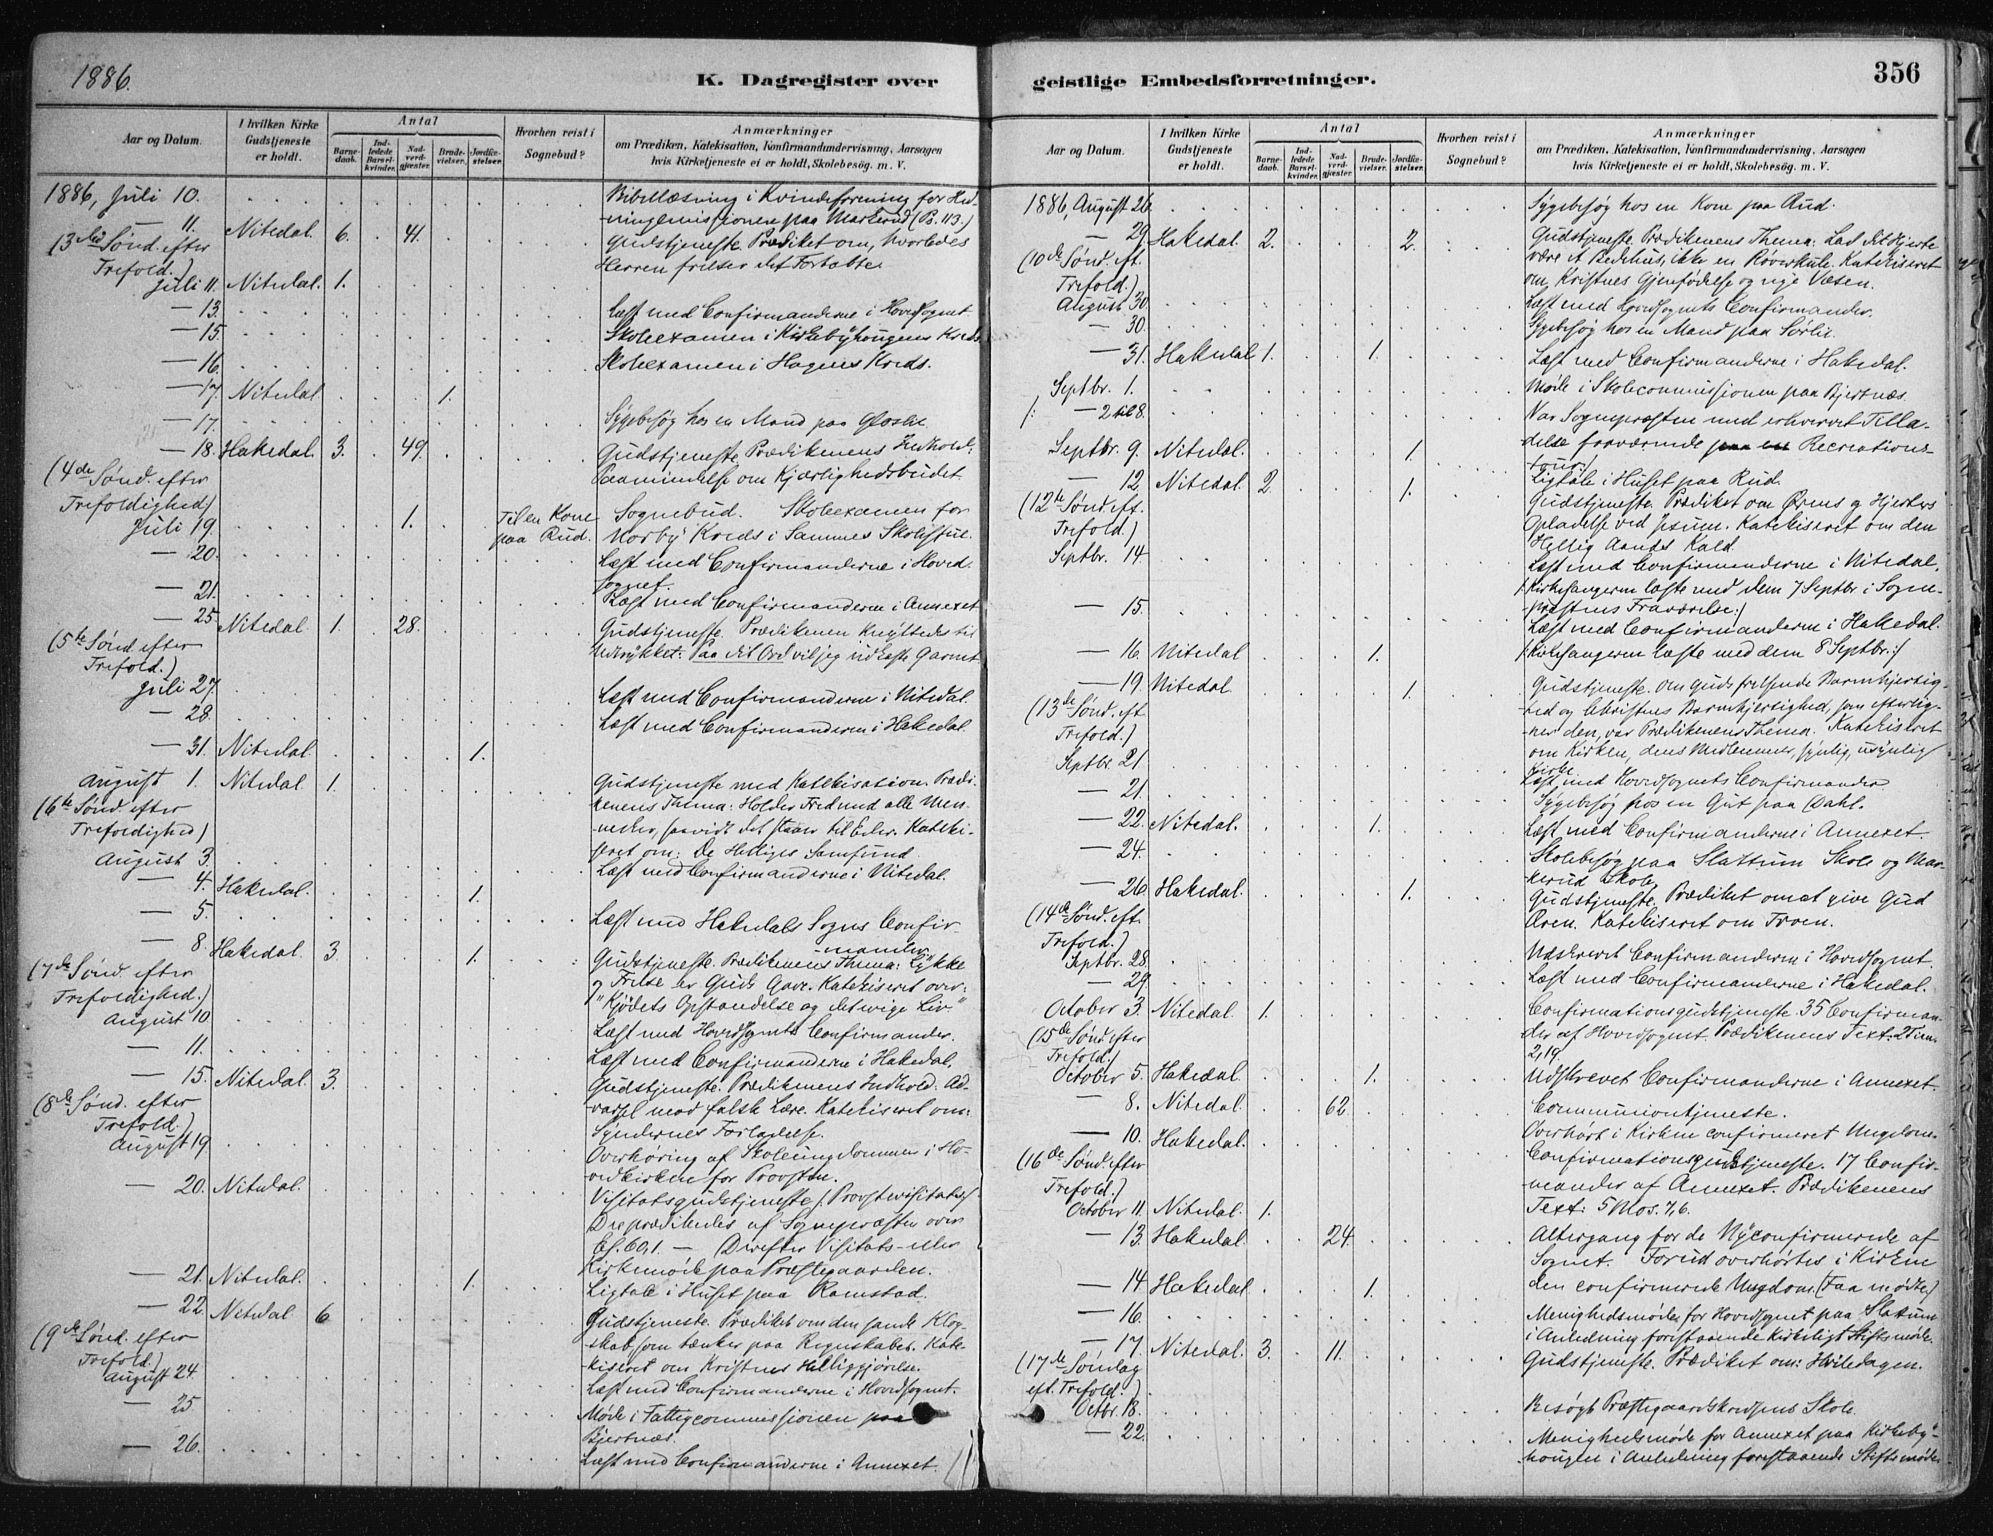 1886.
K. Dagregister over
Aar og Datum.
I hvilken Kirke
Gudstjeneste
er holdt.
Antal
Barne-
daab.
Ind-
ledede
Barsel-
kvinder.
Nad-
verd-
gjester.
Brude-
vielser.
Jordfæ-
stelser.
Hvorhen reist i
Sognebud?
Anmærkninger
om Prædiken, Katekisation, Konfirmandundervisning, Aarsagen
hvis Kirketjeneste ei er holdt, Skolebesög. m. V.
1886, Juli 10. Bibellæsning i Kvindeforening for Hed-
ningemissionen paa Markerud (Ps. 113.)
— 11. Nitedal 6. 41. Gudstjeneste. Prædiket om, hvorledes
(3die Sønd. efter Herren frelser det Fortabte.
Trefold.)
Juli 11. Nitedal. 1.
— 13. Læst med Confirmanderne i Hovedsognet
— 15. Skoleexamen i Kirkebyhougens Kreds.
— 16. Skoleexamen i Hagens Kreds.
— 17. Nitedal 1.
— 17. Sygebesøg hos en Mand paa
— 18. Hakedal. 3. 49. Gudstjeneste. Prædikenens Indhold:
(4de Sønd. efter Paamindelse om Kjærlighedsbudet.
Trefoldighed)
Juli 19. 1. Til en Kone Sognebud. Skoleexamen for
paa Rud. Kreds i Sammes Skolestue.
— 20. Læst med Confirmanderne i Hoved-
sognet.
— 21. Læst med Confirmanderne i Annexet
— 25. Nitedal 1. 28. Gudstjeneste. Prædikenen knyttedes til
(5te Sønd. efter Udtrykket: Paa dit Ord vil jeg udkaste Garnet
Trefold.)
Juli 27. Læst med Confirmanderne i Nitedal.
— 28. Læst med Confirmanderne i Hakedal.
— 31. Nitedal 1.
August 1. Nitedal 1. Gudstjeneste med Katekisation. Prædi-
(6te Sønd. efter kenens Thema: Holder Fred med alle Men-
Trefoldighed) nesker, saavidt det staaer til Eder. Kateki-
seret om: De Helliges Samfund.
August 3. Læst med Confirmanderne i Nitedal.
— 4. Hakedal. 1.
— 5. Læst med Hakedals Sogns Confir-
mander
— 8. Hakedal 3. 1. Gudstjeneste. Prædikenens Thema: Lykke
(7de Sønd. efter og Frelse er Guds Gave. Katekiseret over:
Trefoldighed.) "Kjødets Opstandelse og det evige Liv"
August 10 Læst med Hovedsognets Confirmander.
— 11. Læst med Confirmanderne i Hakedal.
— 15. Nitedal 3. Gudstjeneste. Prædikenens Indhold: Ad-
(8de Sønd. efter varsel mod falsk Lære. Katekiseret om:
Trefold.) Syndernes Forladelse.
August 19 Overhøring af Skoleungdommen i Ho-
vedkirken for Provsten.
— 20. Nitedal. Visitatsgudstjeneste (Provstevisitats)
Der prædikedes af Sognepræsten over
Es. 60,1. — Derefter Visitats- eller
Kirkemøde paa Præstegaarden.
— 21. Nitedal. 1. Ligtale i Huset paa Ramstad.
— 22 Nitedal 6 Gudstjeneste. Prædiket om den sande Klog-
(9de Sønd. efter skab, som tænker paa Regnskabet. Kate-
Trefold.) kiseret om Kristnes Helliggjørelse.
August 24. Læst med Confirmanderne i Hovedsognet.
— 25 Møde i Fattigcommissionen paa
Bjertnæs.
— 26. Læst med Confirmanderne i Annexet
geistlige Embedsforretninger.
356
Aar og Datum.
I hvilken Kirke
Gudstjeneste
er holdt.
Antal
Barne-
daab.
Ind-
ledede
Barsel-
kvinder.
Nad-
verd-
gjester.
Brude-
vielser.
Jordfæ-
stelser.
Hvorhen reist i
Sognebud?
Anmærkninger
om Prædiken, Katekisation, Konfirmandundervisning, Aarsagen
hvis Kirketjeneste ei er holdt, Skolebesög. m. V.
1886, August 26. Sygebesøg hos en Kone paa Rud.
— 29. Hakedal 2. 2. Gudstjeneste. Prædikenens Thema: Lad dit Hjerte
(10de Sønd. eft. være et Bedehus, ikke en Røverkule. Katekiseret
Trefold.) om, Kristnes Gjenfødelse og nye Væsen.
August 30. Læst med Hovedsognets Confirmander.
— 30. Sygebesøg hos en Mand paa Sørlie.
— 31. Hakedal 1. 1. Læst med Confirmanderne i Hakedal.
Septbr. 1. Møde i Skolecommissionen paa Bjertnæs.
/: — 2 til 8. Var Sognepræsten med erhvervet Tilla-
delse fraværende paa en Recreations-
tour.
Septbr. 9. Nitedal. 1. Ligtale i Huset paa Rud.
— 12. Nitedal. 2. 1. Gudstjeneste. Prædiket om Ørens og Hjertets
(12te Sønd. eft. Opladelse ved Jesum. Katekiseret om den
Trefold.) Hellig Aands Kald.
Septbr. 14. Læst med Confirmanderne i Nitedal.
/: Kirkesangeren læste med dem 7 Septbr. i Sogne-
præstens Fraværelse:/
— 15. Læst med Confirmanderne i Hakedal.
/: Kirkesangeren læste med dem 8 Septbr.:/
— 16. Nitedal 1.
— 19 Nitedal. 1. Gudstjeneste. Om Guds frelsende Barmhjertig-
(13de Sønd. eft. hed og Christnes Barmhjertighed, som efterlig-
Trefold.) ner den, var Prædikenens Thema. Katekiseret
om Kirken, dens Medlemmer, synlig, usynlig
Kirke.
Septbr. 21. Læst med Hovedsognets Confirmander
— 21. Sygebesøg hos en Gut paa Dahl.
— 22. Nitedal. 1. Læst med Confirmanderne i Annexet.
— 24. Skolebesøg paa Slattum Skole og Mar-
kerud Skole.
— 26 Hakedal. 1. Gudstjeneste. Prædiket om at give Gud
(14de Sønd. eft. Æren. Katekiseret om Troen.
Trefold.)
Septbr. 28. Udskrevet Confirmanderne i Hovedsognet
— 29. Læst med Confirmanderne i Hakedal.
October 3. Nitedal 1. Confirmationsgudstjeneste 35 Confirman-
(15de Sønd. efter der af Hovedsognet. Prædikenens Text: 2 Tim.
Trefold.) 2,19.
October 5. Hakedal. 1. Udskrevet Confirmanderne i Annexet.
— 8. Nitedal. 62. Communiontjeneste.
Overhørt i Kirken confirmeret Ungdom.
— 10. Hakedal. Confirmationsgudstjeneste. 17 Confir-
(16de Sønd. efter mander af Annexet. Prædikenens
Trefold.) Text: 5 Mos. 7,6.
October 11. Nitedal. 1.
— 13. Hakedal. 24. Altergang for de Nyconfirmerede af
Sognet. Forud overhørtes i Kirken
den confirmerede Ungdom. (Faa mødte.)
— 14 Hakedal 1.
— 16. Menighedsmøde for Hovedsognet paa Slatum
i Anledning forestaaende kirkeligt Stiftsmøde.
— 17. Nitedal. 3. 11. Gudstjeneste. Prædiket om: Hviledagen.
(17de Søndag
eft. Trefold.)
Octbr. 18. Besøgt Præstegaardskredsens Skole.
— 22. Menighedsmøde for Annexet paa Kirkeby-
hougen i Anledning forestaaende Stiftsmøde